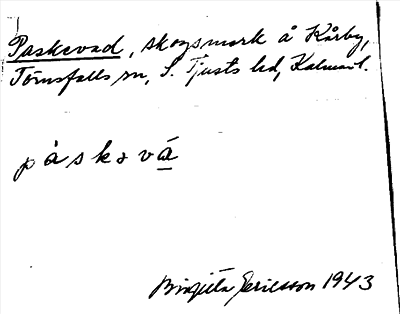 Paskevad, skogsmark å Kårby,
Törnsfalls sn, S. Tjusts hd, Kalmar l.
på̀skəvá
Birgitta Ericsson 1943